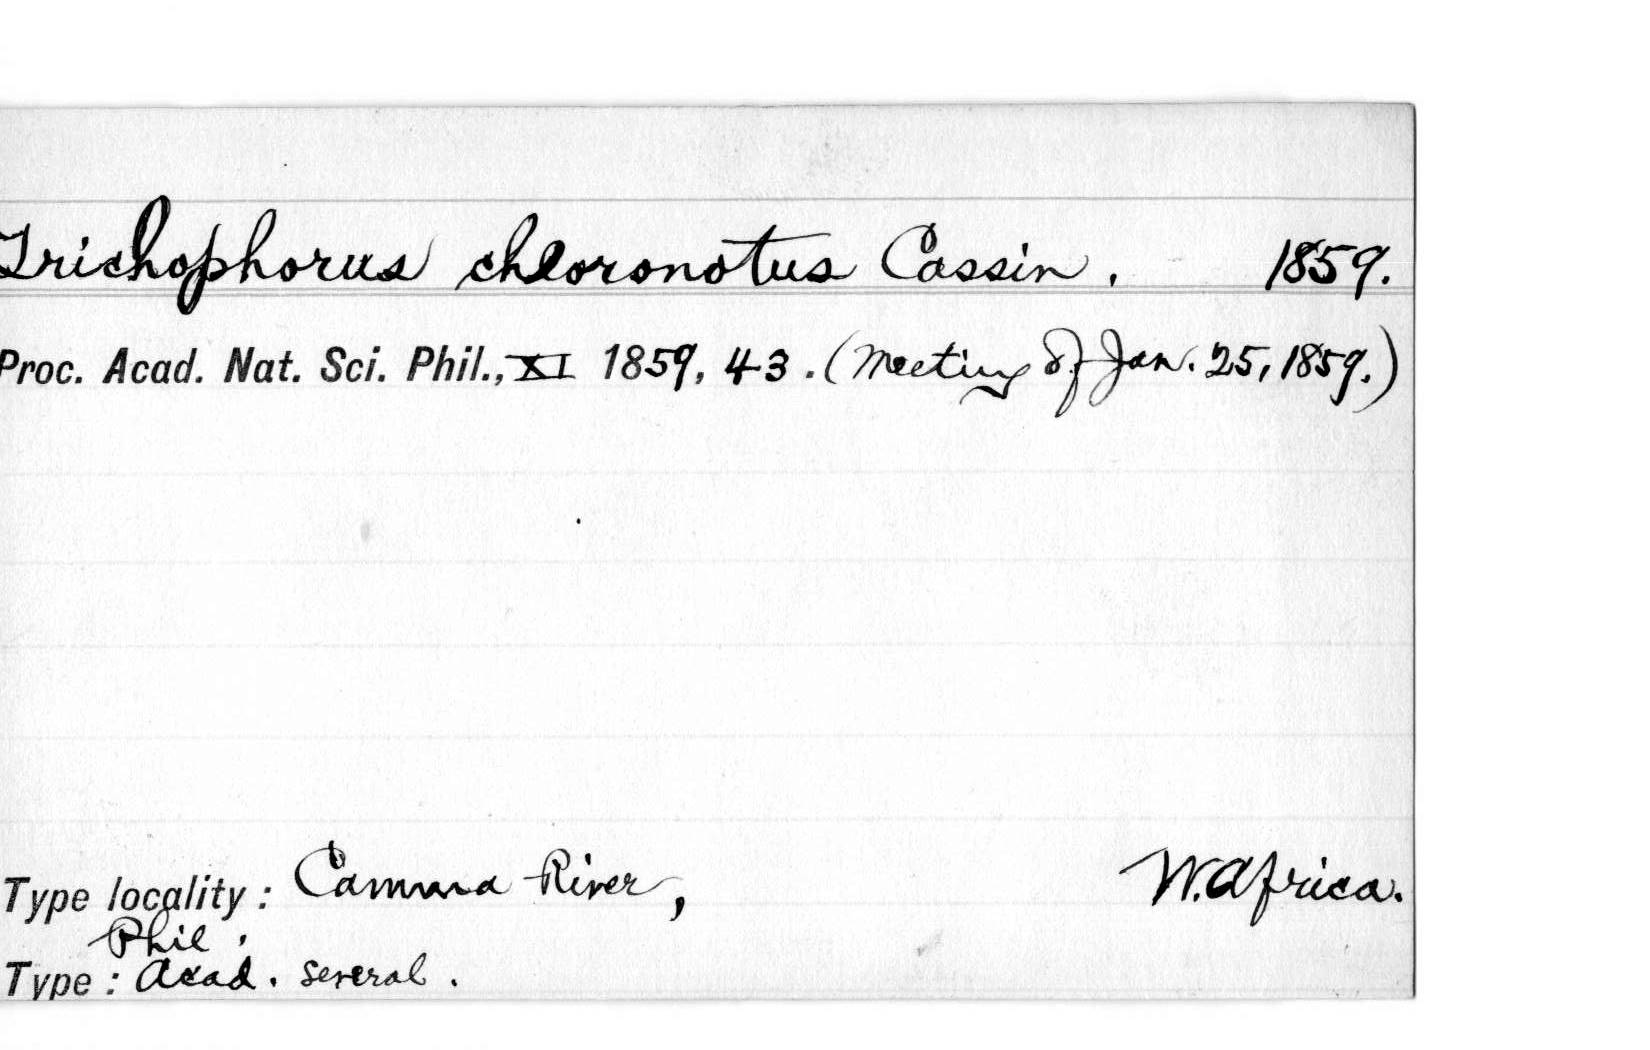 Trichophorus chloronotus Cassin. 1859.
Proc. Acad. Nat. Sci. Phil., XI 1859, 43. (Meeting of Jan. 25, 1859.)
Type locality: Camma River, W. Africa.
Phil.
Type: Acad. several.